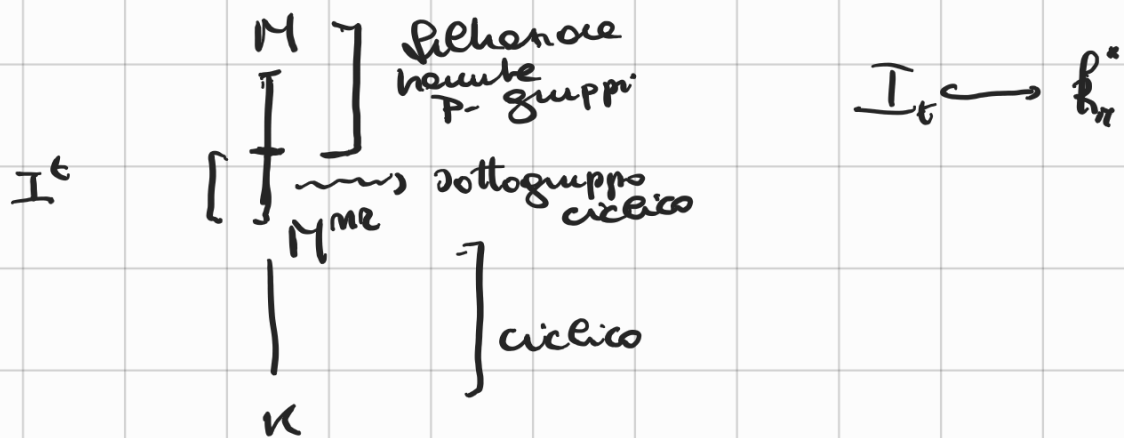 M
filtrazione
tramite
p-gruppi
I_t ↪ k_M^*
I^t
sottogruppo
ciclico
M^{nr}
ciclico
K